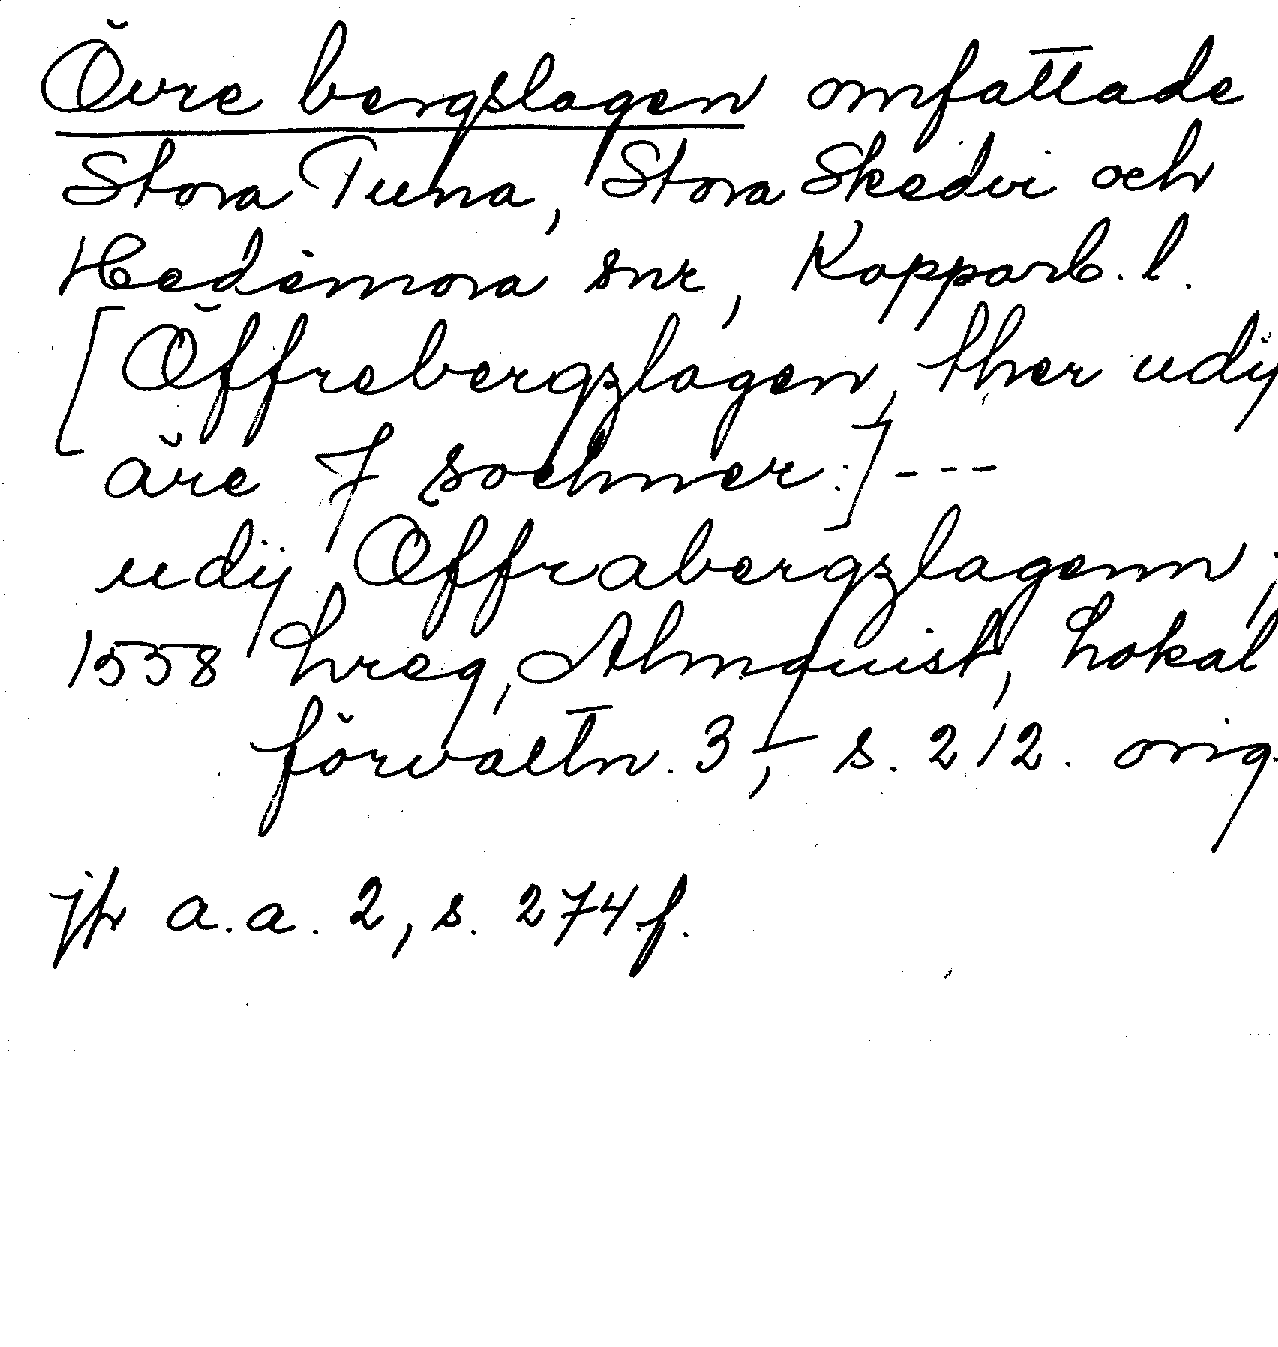 Övre bergslagen omfattade
Stora Tuna, Stora Skedvi och
Hedemora snr, Kopparb. l.
[Öffrebergzlagen, ther udij
äre 7 sochner.] ---
udij Öffrabergzlagenn,
1558 Lreg, Almquist, Lokal
förvaltn. 3, s. 212. orig.
jfr a.a. 2, s. 274 f.